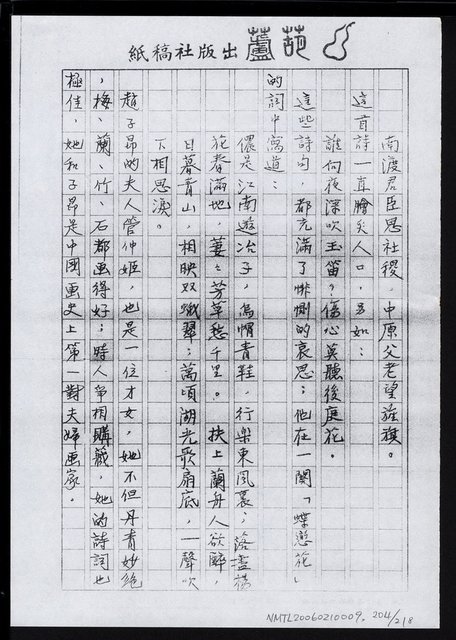 葫蘆出版社稿紙
南渡君臣思社稷　中原父老望旌旗。
這首詩一直膾炙人口，另如：
誰向夜深吹玉笛？傷心莫聽後庭花。
這些詩句，都充滿了悱惻的哀思；他在一闋「蝶戀花」
的詞中寫道：
儂是江南遊冶子，烏帽青鞋，行樂東風裏；落盡楊
花春滿地　萋萋芳草愁千里。　扶上蘭舟人欲醉，
日暮青山，相映双蛾翠；萬頃湖光歌扇底，一聲吹
下相思淚。
趙子昂的夫人管仲姬，也是一位才女，她不但丹青妙絕
，梅、蘭、竹、石都画得好；時人爭相購藏，她的詩詞也
極佳，她和子昂是中國画史上第一對夫婦画家。
NMTL20060210009. 204/218